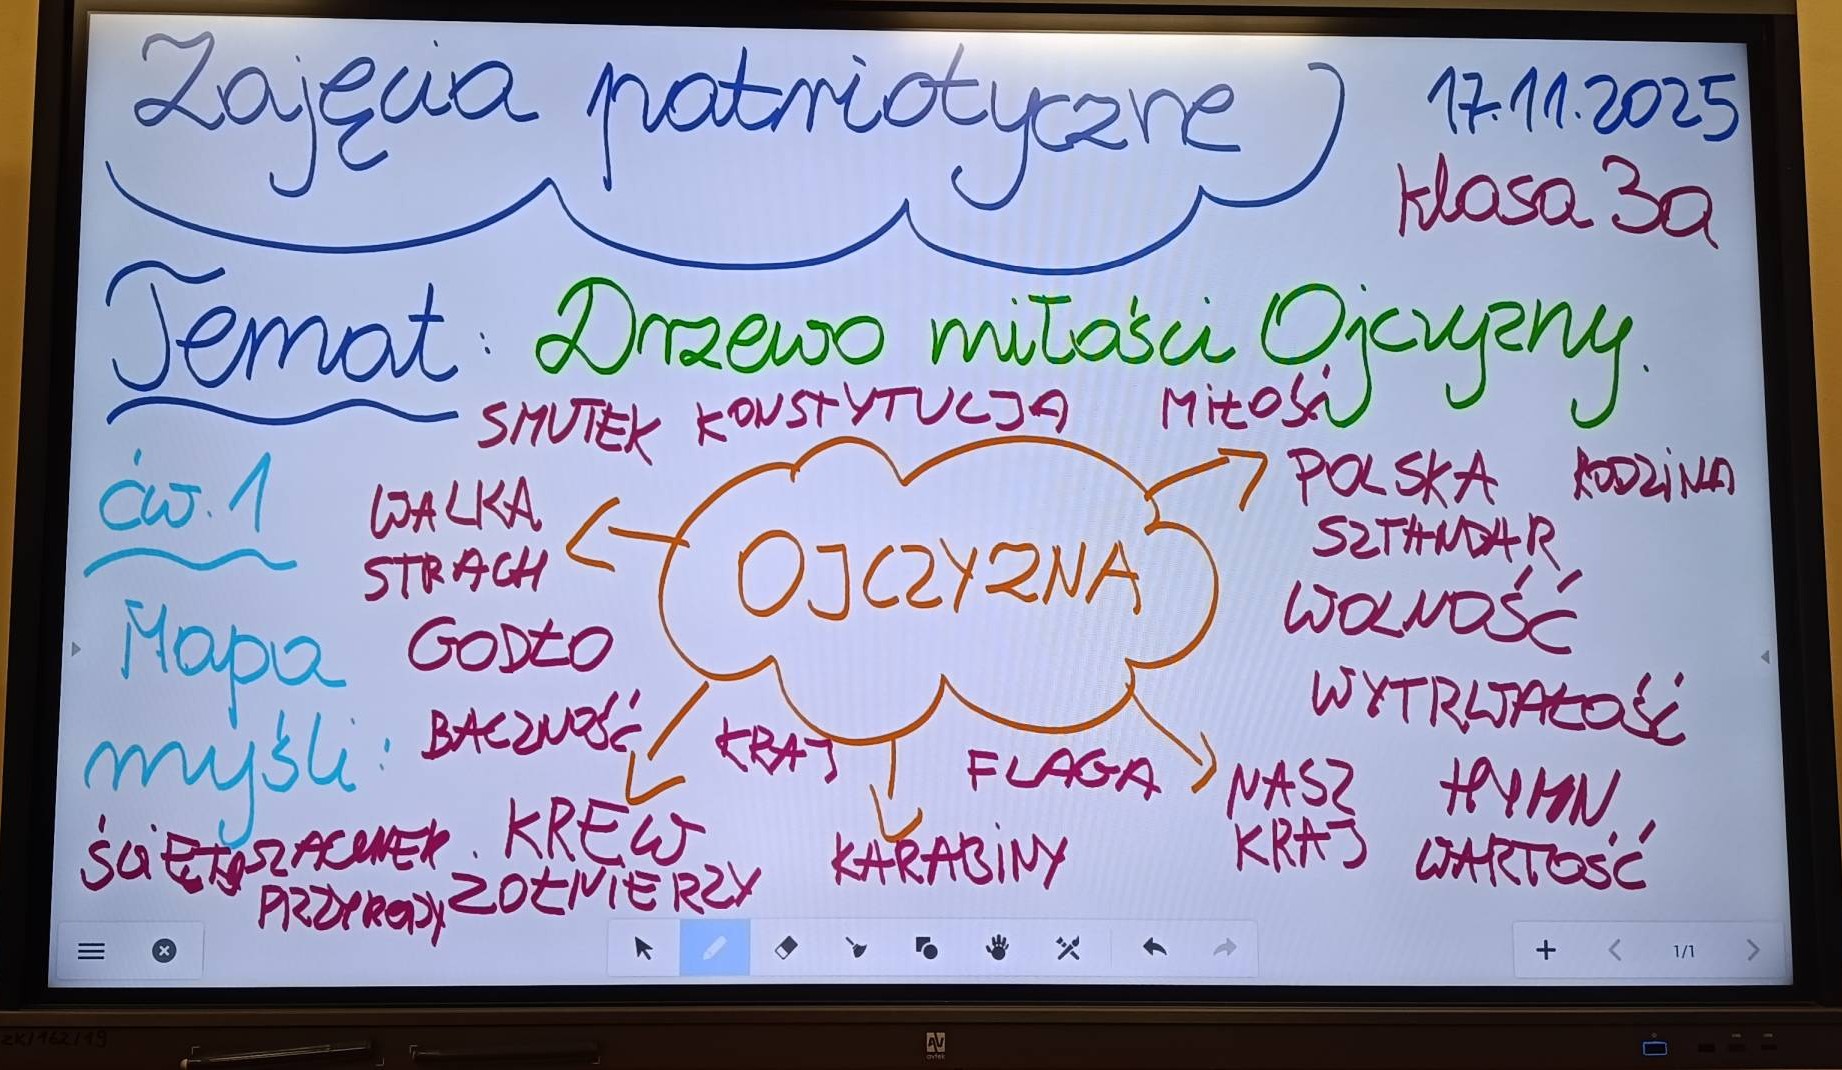 Zajęcia patriotyczne 17.11.2025
klasa 3a
Temat: Drzewo miłości Ojczyzny.
SMUTEK KONSTYTUCJA MIŁOŚĆ
ćw. 1 WALKA POLSKA RODZINA
STRACH OJCZYZNA SZTANDAR
Mapa GODŁO WOLNOŚĆ
myśli: BACZNOŚĆ WYTRWAŁOŚĆ
KRAJ FLAGA NASZ HYMN
KREW KARABINY KRAJ WARTOŚĆ
SZACUNEK ŻOŁNIERZY
PRZYRODY
1/1
ZK/162/19
AV
avtek